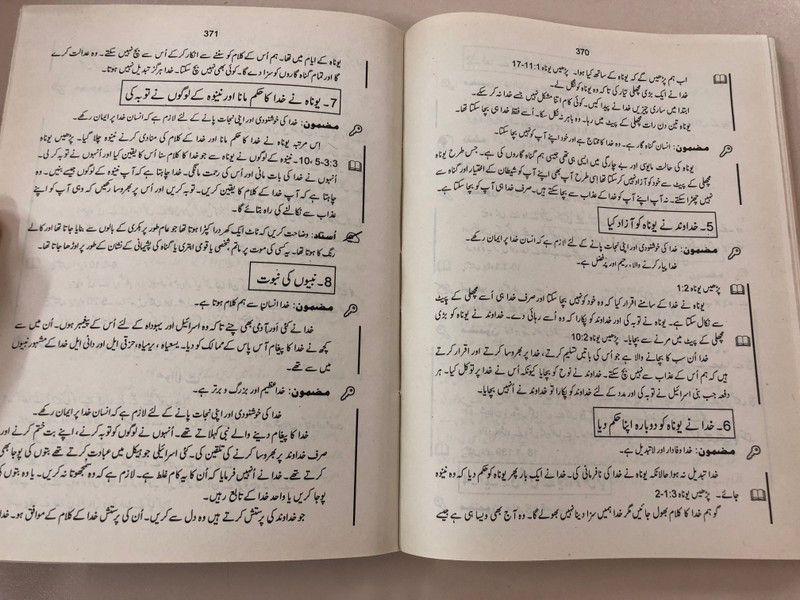 370
اب ہم پڑھیں گے کہ یوناہ کے ساتھ کیا ہوا۔ پڑھیں یوناہ 1:11-17
خدا نے ایک بڑی مچھلی تیار کی تاکہ وہ یوناہ کو نگل لے۔
ابتدا میں ساری چیزیں خدا نے پیدا کیں۔ کوئی کام اتنا مشکل نہیں جسے خدا نہ کر سکے۔
یوناہ تین دن رات مچھلی کے پیٹ میں رہا۔ وہ باہر نہ نکل سکا۔ اُسے فقط خدا ہی بچا سکتا تھا۔
مضمون: انسان گناہ گار ہے۔ وہ خدا کا محتاج ہے اور خود اپنے آپ کو نہیں بچا سکتا۔
یوناہ کی حالت مایوسی اور بے چارگی میں ایسی ہی تھی جیسی ہم گناہ گاروں کی ہے۔ جس طرح یوناہ
مچھلی کے پیٹ سے خود کو آزاد نہیں کر سکتا تھا اسی طرح آپ بھی اپنے آپ کو شیطان کے اختیار اور گناہ سے
نہیں چھڑا سکتے۔ نہ آپ اپنے آپ کو خدا کے عذاب سے بچا سکتے ہیں۔ صرف خدا ہی آپ کو بچا سکتا ہے۔
5۔ خداوند نے یوناہ کو آزاد کیا
مضمون: خدا کی خوشنودی اور اپنی نجات پانے کے لئے لازم ہے کہ انسان خدا پر ایمان رکھے۔
خدا پیار کرنے والا، رحیم اور پُر فضل ہے۔
پڑھیں یوناہ 1:2
یوناہ نے خدا کے سامنے اقرار کیا کہ وہ خود کو نہیں بچا سکتا اور صرف خدا ہی اُسے مچھلی کے پیٹ
سے نکال سکتا ہے۔ یوناہ نے توبہ کی اور خداوند کو پکارا کہ وہ اُسے رہائی دے۔ خداوند نے یوناہ کو بڑی
مچھلی کے پیٹ میں مرنے سے بچایا۔ پڑھیں یوناہ 10:2
خدا اُن سب کا بچانے والا ہے جو اُس کی باتیں تسلیم کرتے، خدا پر بھروسا کرتے اور اقرار کرتے
ہیں کہ ہم اُس کے عذاب سے نہیں بچ سکتے۔ خداوند نے نوح کو بچایا کیونکہ اُس نے خدا پر توکل کیا۔ ہر
دفعہ جب بنی اسرائیل نے توبہ کی اور مدد کے لئے خداوند کو پکارا تو خداوند نے اُنہیں بچایا۔
6۔ خدا نے یوناہ کو دوبارہ اپنا حکم دیا
مضمون: خدا وفادار اور لاتبدیل ہے۔
خدا تبدیل نہ ہوا حالانکہ یوناہ نے خدا کی نافرمانی کی۔ خدا نے ایک بار پھر یوناہ کو حکم دیا کہ وہ نینوہ
جائے۔ پڑھیں یوناہ 1:3-2
گو ہم خدا کا کلام بھول جائیں مگر خدا ہمیں سزا دینا نہیں بھولے گا۔ وہ آج بھی ویسا ہی ہے جیسے
371
یوناہ کے ایام میں تھا۔ ہم اُس کے کلام کو سننے سے انکار کر کے اُس سے بچ نہیں سکتے۔ وہ عدالت کرے
گا اور تمام گناہ گاروں کو سزا دے گا۔ کوئی بھی نہیں بچ سکتا۔ خدا ہرگز تبدیل نہیں ہوتا۔
7۔ یوناہ نے خدا کا حکم مانا اور نینوہ کے لوگوں نے توبہ کی
مضمون: خدا کی خوشنودی اور اپنی نجات پانے کے لئے لازم ہے کہ انسان خدا پر ایمان رکھے۔
اِس مرتبہ یوناہ نے خدا کا حکم مانا اور خدا کے کلام کی منادی کرنے نینوہ چلا گیا۔ پڑھیں یوناہ
3:3-5، 10۔ نینوہ کے لوگوں نے یوناہ سے جو خدا کا کلام سنا اُس کا یقین کیا اور اُنہوں نے توبہ کر لی۔
اُنہوں نے خدا کی بات مانی اور اُس کی رحمت مانگی۔ خدا چاہتا ہے کہ آپ نینوہ کے لوگوں جیسے بنیں۔ وہ
چاہتا ہے کہ آپ خدا کے کلام کا یقین کریں۔ توبہ کریں اور اُس پر بھروسا رکھیں کہ وہی آپ کو اپنے
عذاب سے نکالنے کی راہ بتائے گا۔
اُستاد: وضاحت کریں کہ ٹاٹ ایک کھردرا کپڑا ہوتا تھا جو عام طور پر بکری کے بالوں سے بنایا جاتا تھا اور کالے
رنگ کا ہوتا تھا۔ یہ کسی کی موت پر ماتم، شخصی یا قومی ابتری یا گناہ کی پشیمانی کے نشان کے طور پر اوڑھا جاتا تھا۔
8۔ نبیوں کی نبوت
مضمون: خدا انسان سے ہم کلام ہوتا ہے۔
خدا نے کئی اور آدمی بھی چنے تاکہ وہ اسرائیل اور یہوداہ کے لئے اُس کے پیغمبر ہوں۔ اُن میں سے
کچھ نے خدا کا پیغام آس پاس کے ممالک کو دیا۔ یسعیاہ، یرمیاہ، حزقی ایل اور دانی ایل خدا کے مشہور نبیوں
میں سے تھے۔
مضمون: خدا عظیم اور بزرگ و برتر ہے۔
خدا کی خوشنودی اور اپنی نجات پانے کے لئے لازم ہے کہ انسان خدا پر ایمان رکھے۔
خدا کا پیغام دینے والے نبی کہلاتے تھے۔ اُنہوں نے لوگوں کو توبہ کرنے، اپنے بت ختم کرنے اور
صرف خداوند پر بھروسا کرنے کی تلقین کی۔ کئی اسرائیلی جو ہیکل میں عبادت کرتے تھے بتوں کی پوجا بھی
کرتے تھے۔ خدا نے اُنہیں فرمایا کہ اُن کا یہ کام غلط ہے۔ لازم ہے کہ وہ سمجھوتا نہ کریں۔ یا وہ بتوں کی
پوجا کریں یا واحد خدا کے تابع رہیں۔
جو خداوند کی پرستش کرتے ہیں وہ دل سے کریں۔ اُن کی پرستش خدا کے کلام کے موافق ہو۔ خدا